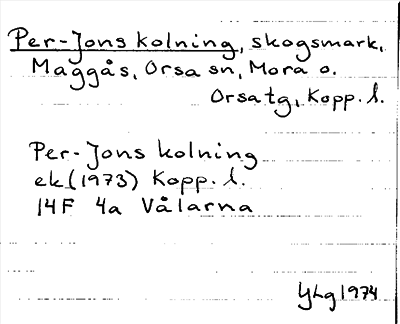 Per-Jons kolning, skogsmark,
Maggås, Orsa sn, Mora o.
Orsa tg, Kopp. l.
Per-Jons kolning
ek (1973) Kopp. l.
14F 4a Vålarna
YLg 1974